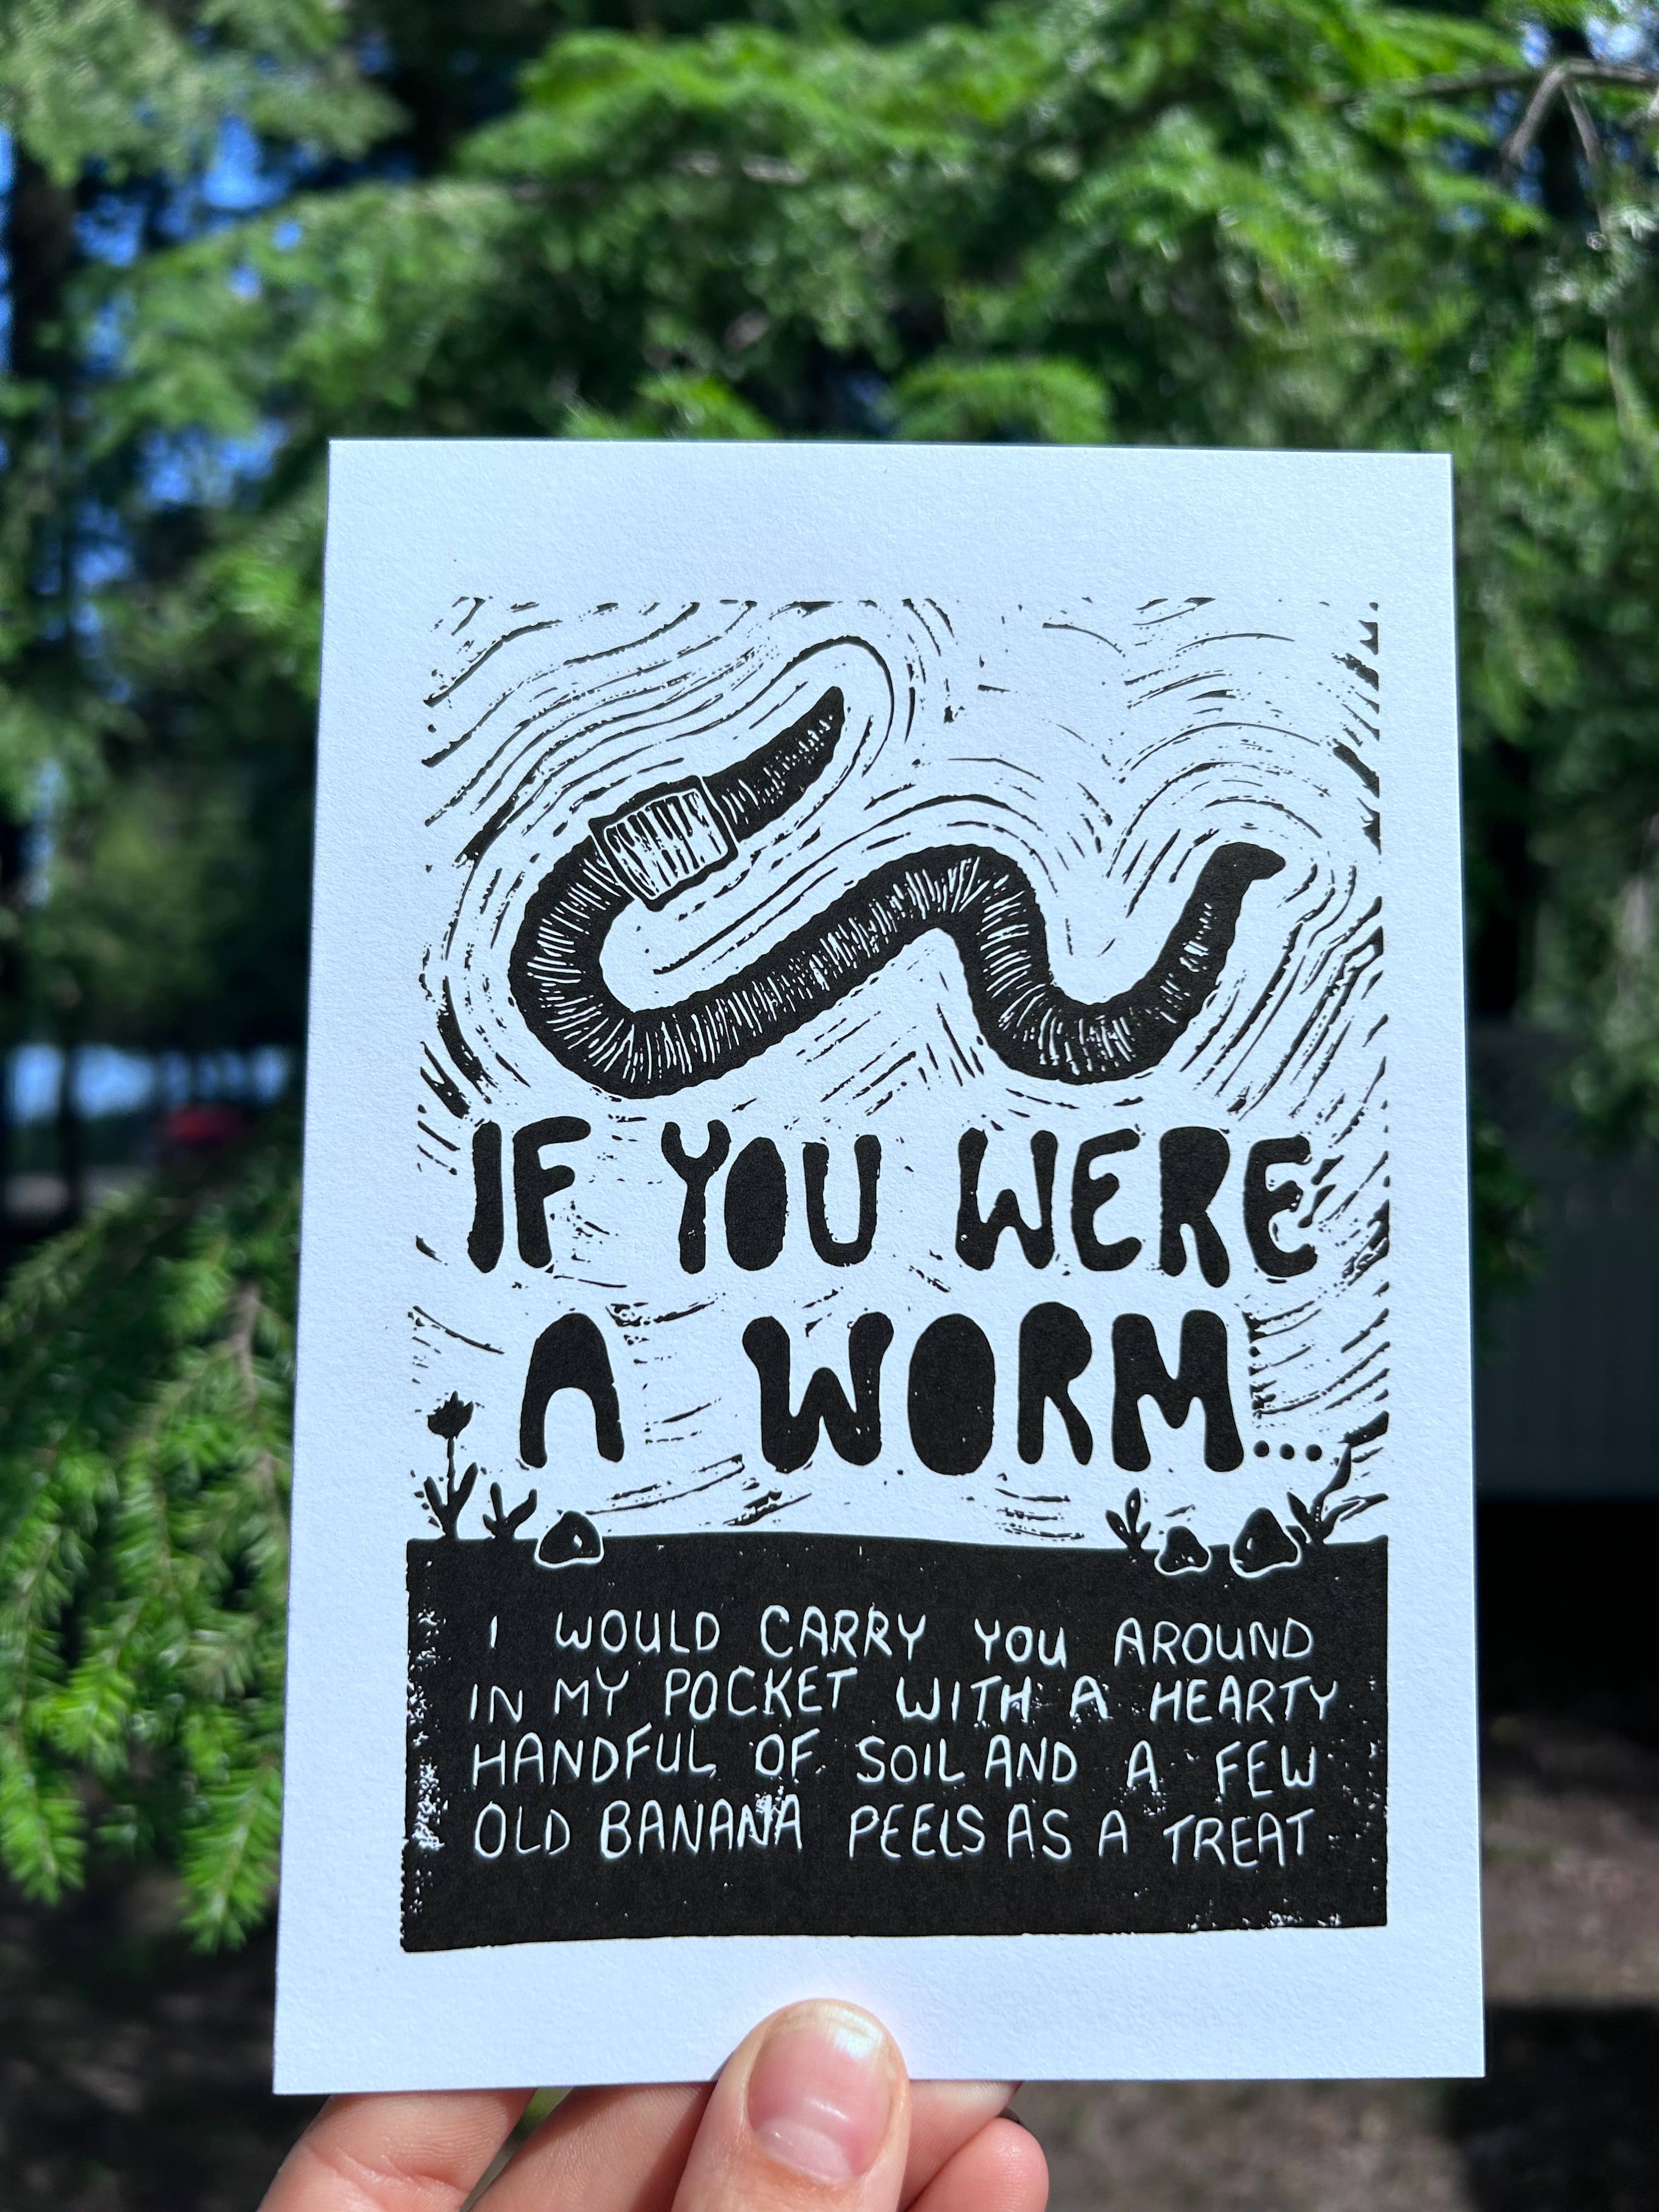 IF YOU WERE
A WORM...
I WOULD CARRY YOU AROUND
IN MY POCKET WITH A HEARTY
HANDFUL OF SOIL AND A FEW
OLD BANANA PEELS AS A TREAT